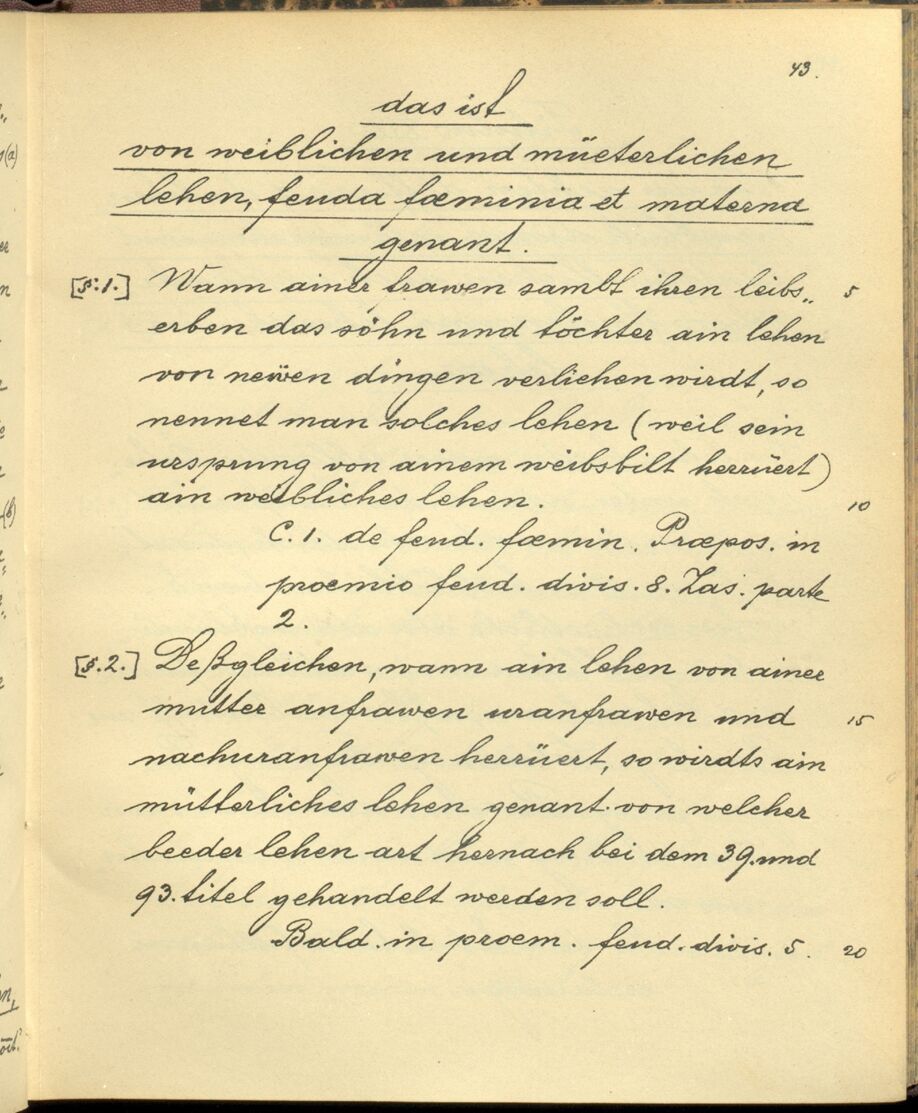 43.
das ist
von weiblichen und müeterlichen
lehen, feuda fœminia et materna
genant.
[§.1.] Wann ainer frawen sambt ihren leibs„ 5
erben das söhn und töchter ain lehen
von newen dingen verliehen wirdt, so
nennet man solches lehen (weil sein
ursprung von ainem weibsbilt herrüert)
ain weibliches lehen. 10
C. 1. de feud. fœmin. Præpos. in
proemio feud. divis. 8. Zas. parte
2.
[§.2.] Deßgleichen, wann ain lehen von ainer
mutter anfrawen uranfrawen und 15
nachuranfrawen herrüert, so wirdts ain
mütterliches lehen genant von welcher
beeder lehen art hernach bei dem 39. und
93. titel gehandelt werden soll.
Bald. in proem. feud. divis. 5. 20